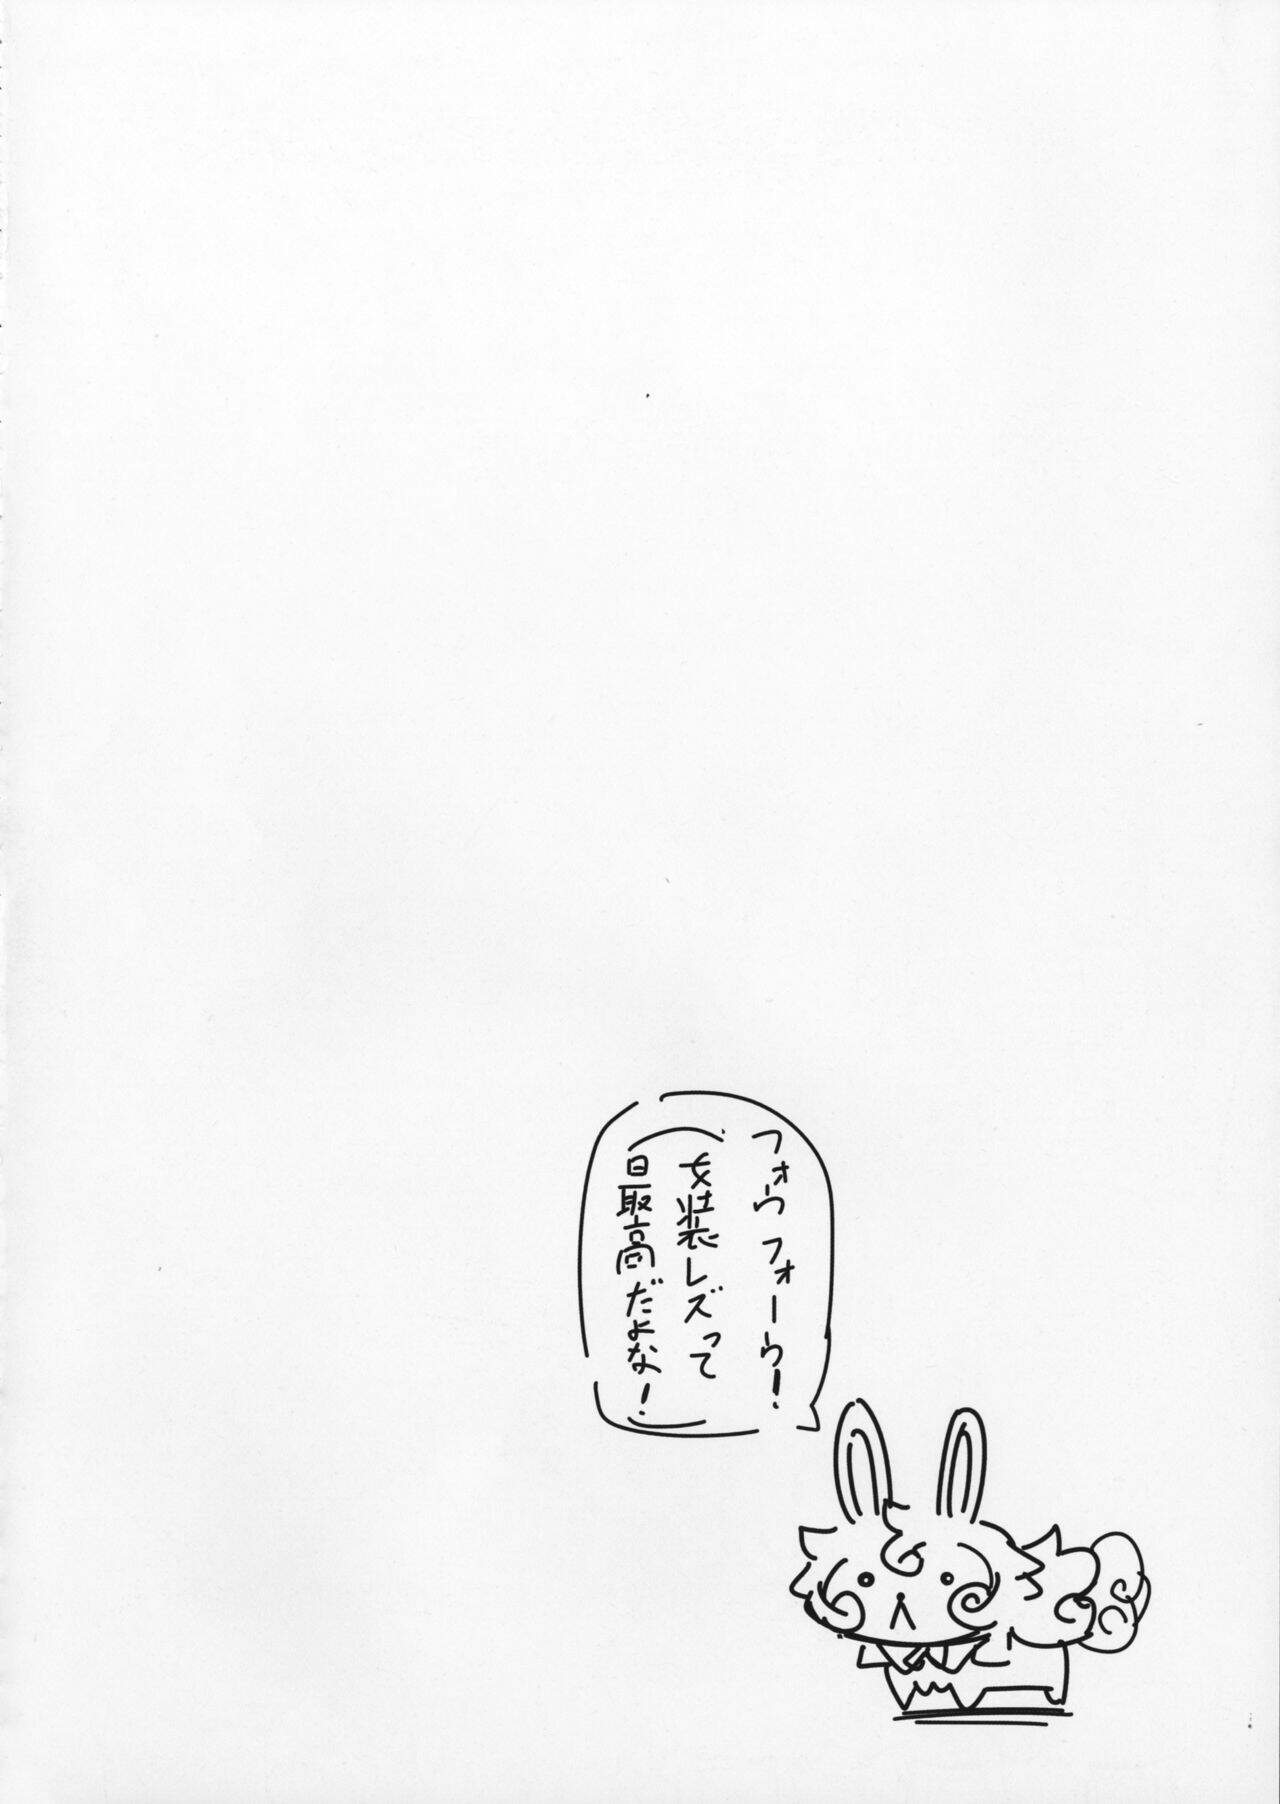 フォウフォーウ!
女装レズって
最高だよな!